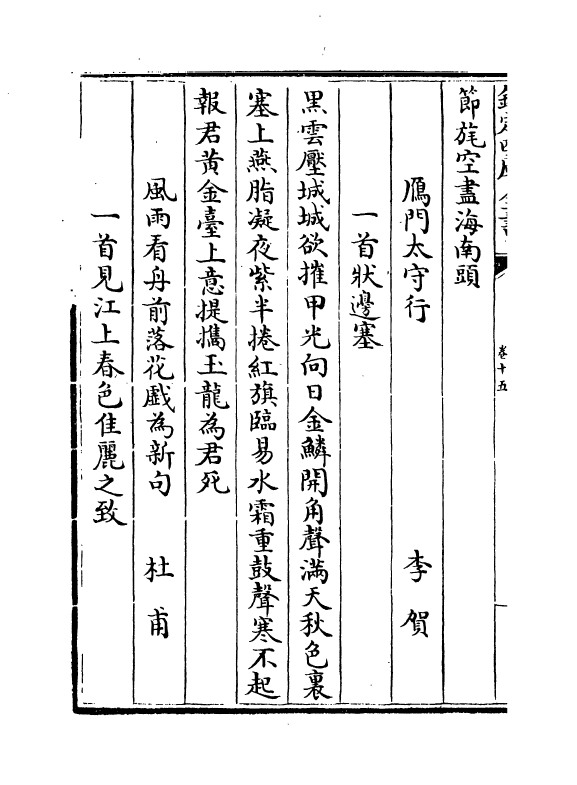 欽定四庫全書
卷十五
節旄空盡海南頭
鴈門太守行　李賀
一首狀邊塞
黑雲壓城城欲摧甲光向日金鱗開角聲滿天秋色裏
塞上燕脂凝夜紫半捲紅旗臨易水霜重鼓聲寒不起
報君黃金臺上意提攜玉龍為君死
風雨看舟前落花戲為新句　杜甫
一首見江上春色佳麗之致